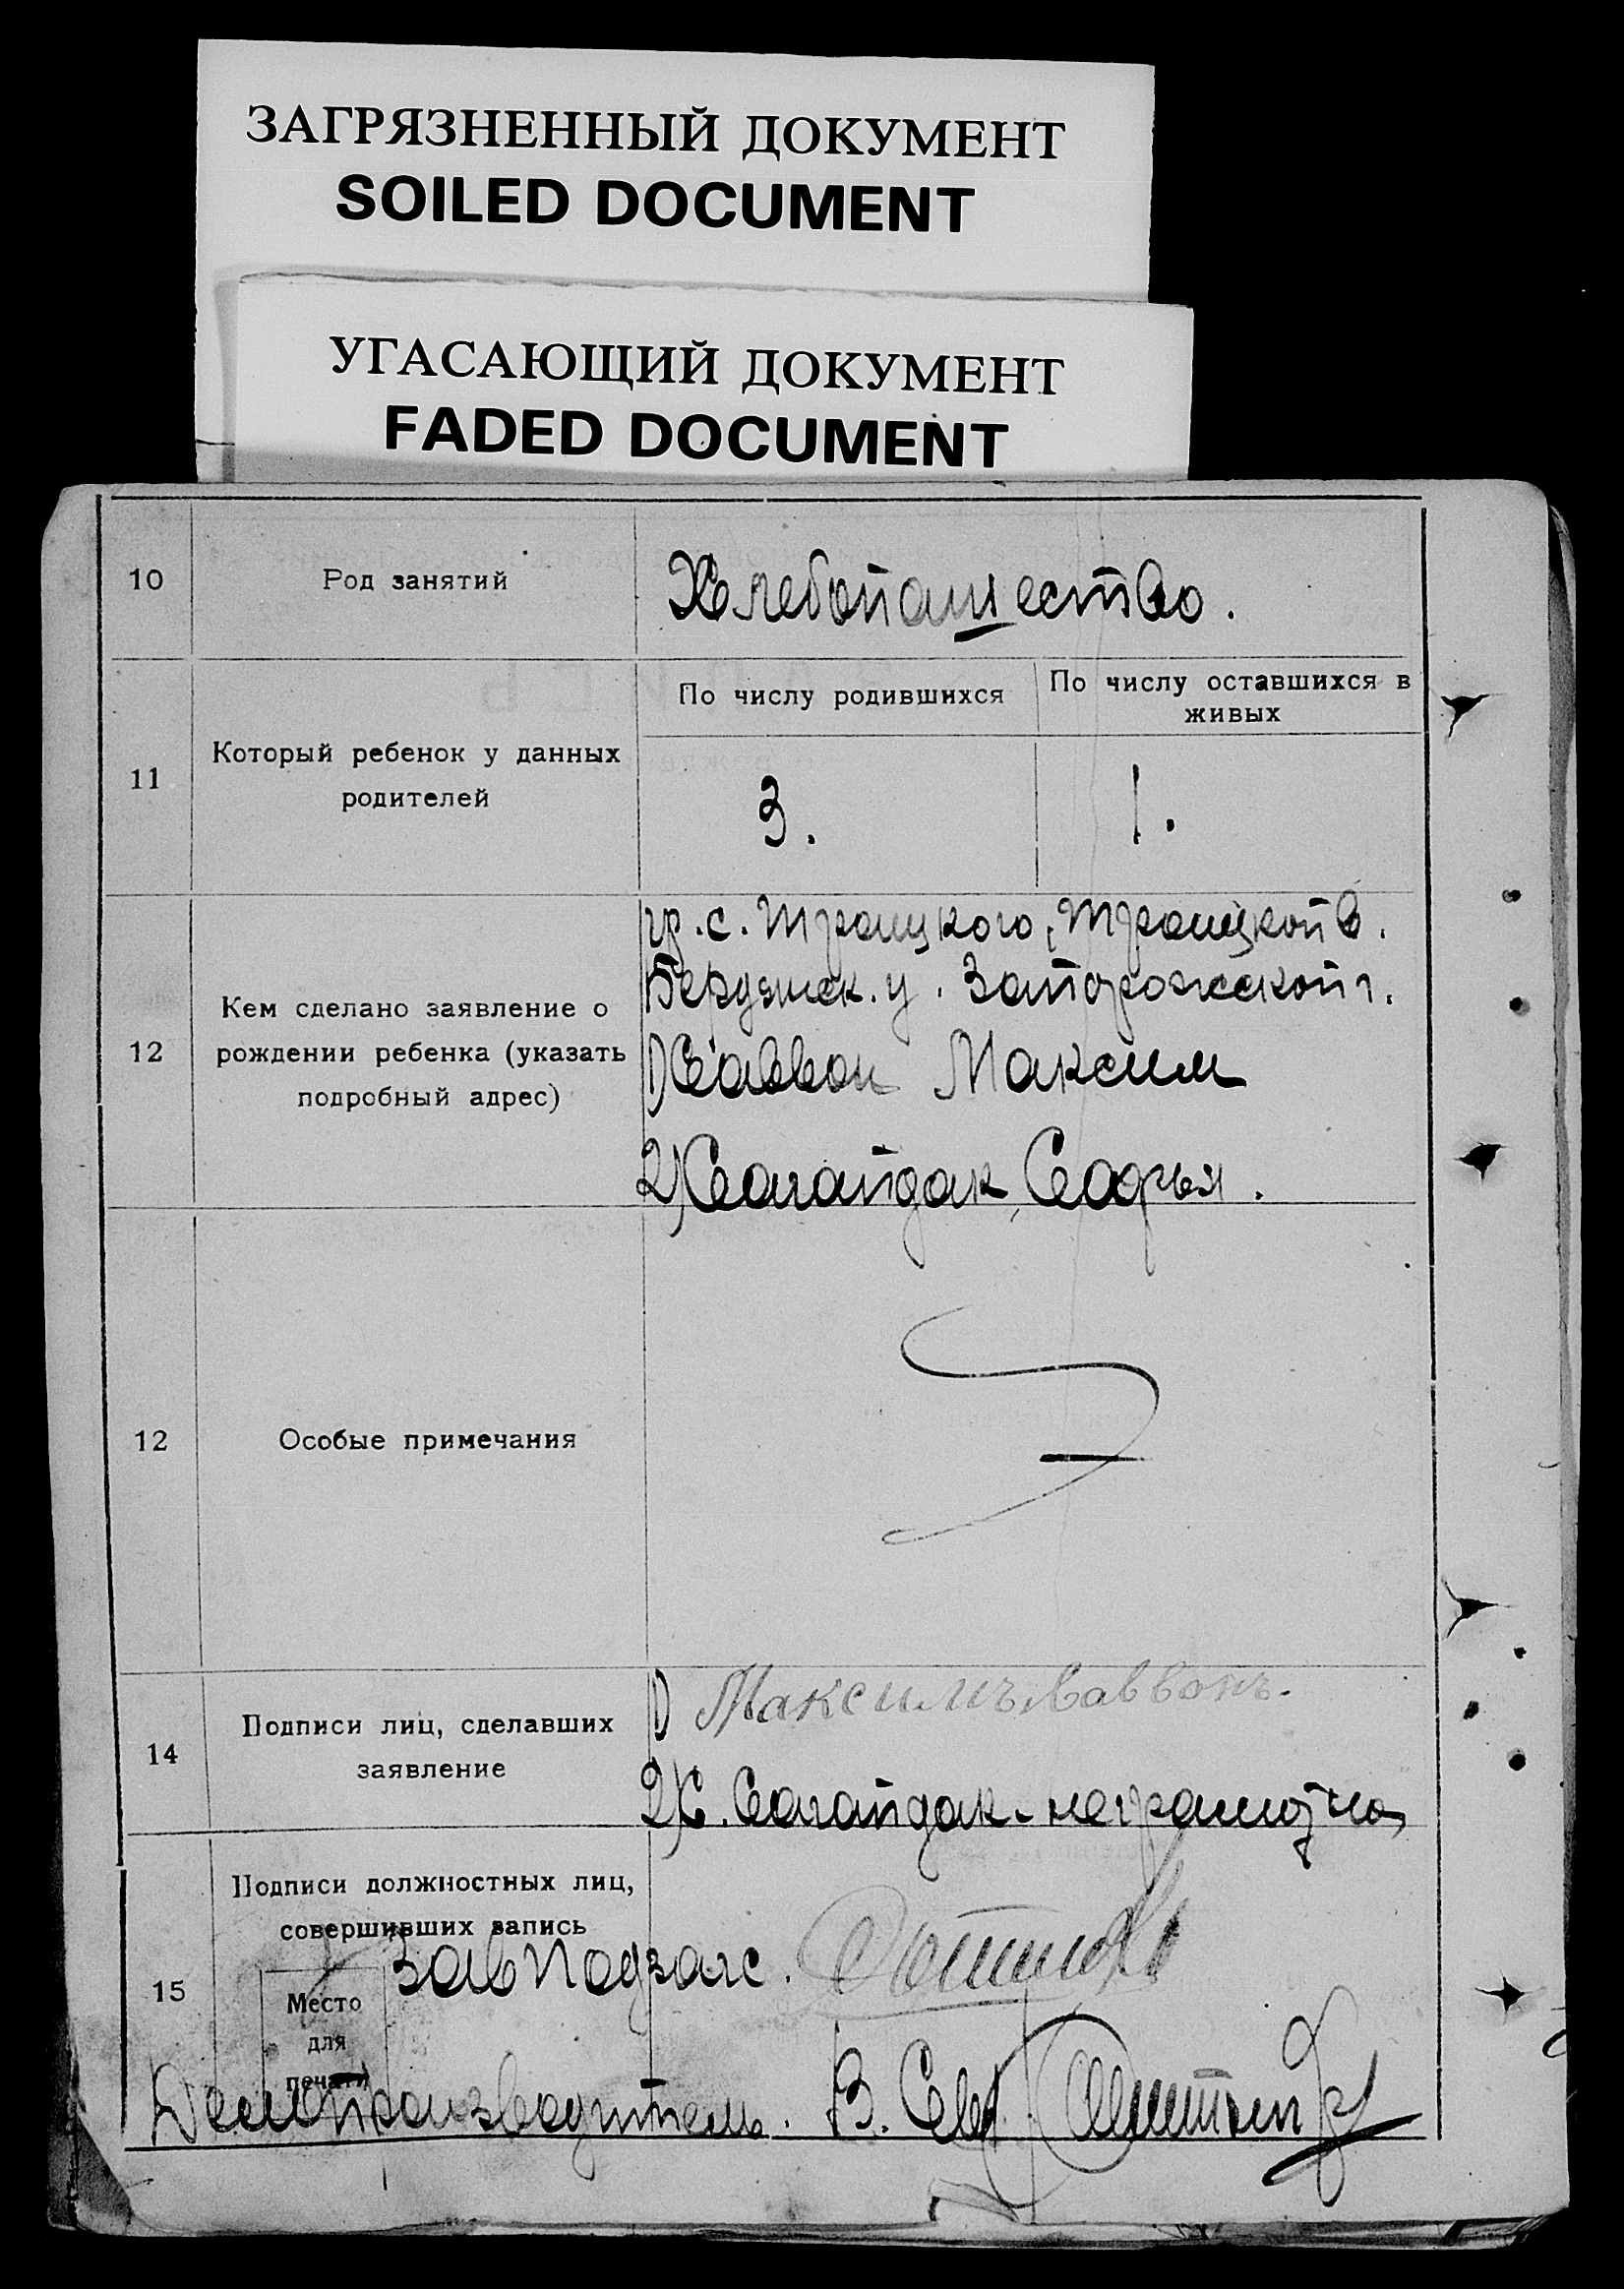 ЗАГРЯЗНЕННЫЙ ДОКУМЕНТ
SOILED DOCUMENT
УГАСАЮЩИЙ ДОКУМЕНТ
FADED DOCUMENT
10
Род занятий
Хлебопашество.
11
Который ребенок у данных
родителей
По числу родившихся
3.
По числу оставшихся в
живых
1.
12
Кем сделано заявление о
рождении ребенка (указать
подробный адрес)
гр. с. Троицкого, Троицкой в.
Бердянск. у. Запорожской г.
1) Саввон Максим
2) Сагайдак Софья.
12
Особые примечания
14
Подписи лиц, сделавших
заявление
1) Максимъ Саввонъ.
2) С. Сагайдак - неграмотна
15
Подписи должностных лиц,
совершивших запись
Завподзагс.
Место
для
печати
Делопроизводитель.